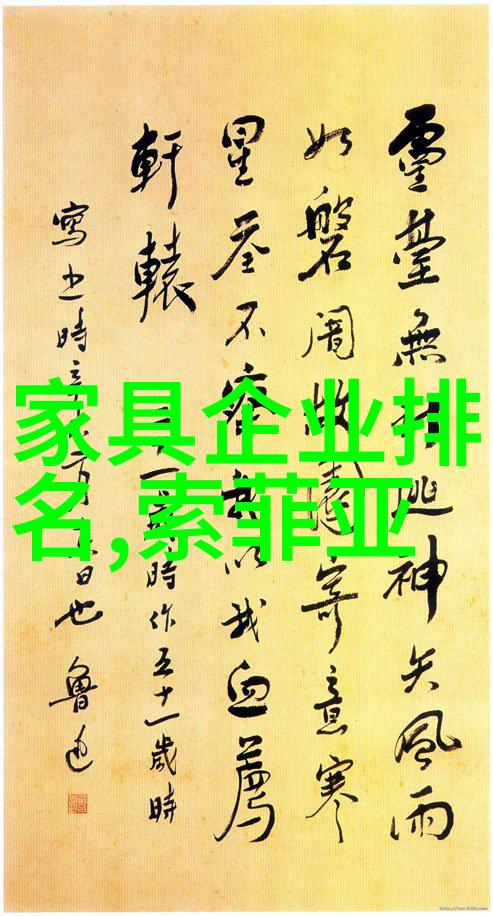 家具企业排
名,索菲亚
靈臺無計逃神矢風雨
如磐闇故園寄意寒
星荃不察我以我血薦
軒轅 二十一歲時作五十一歲時
寫之時辛未二月十六日也 魯迅